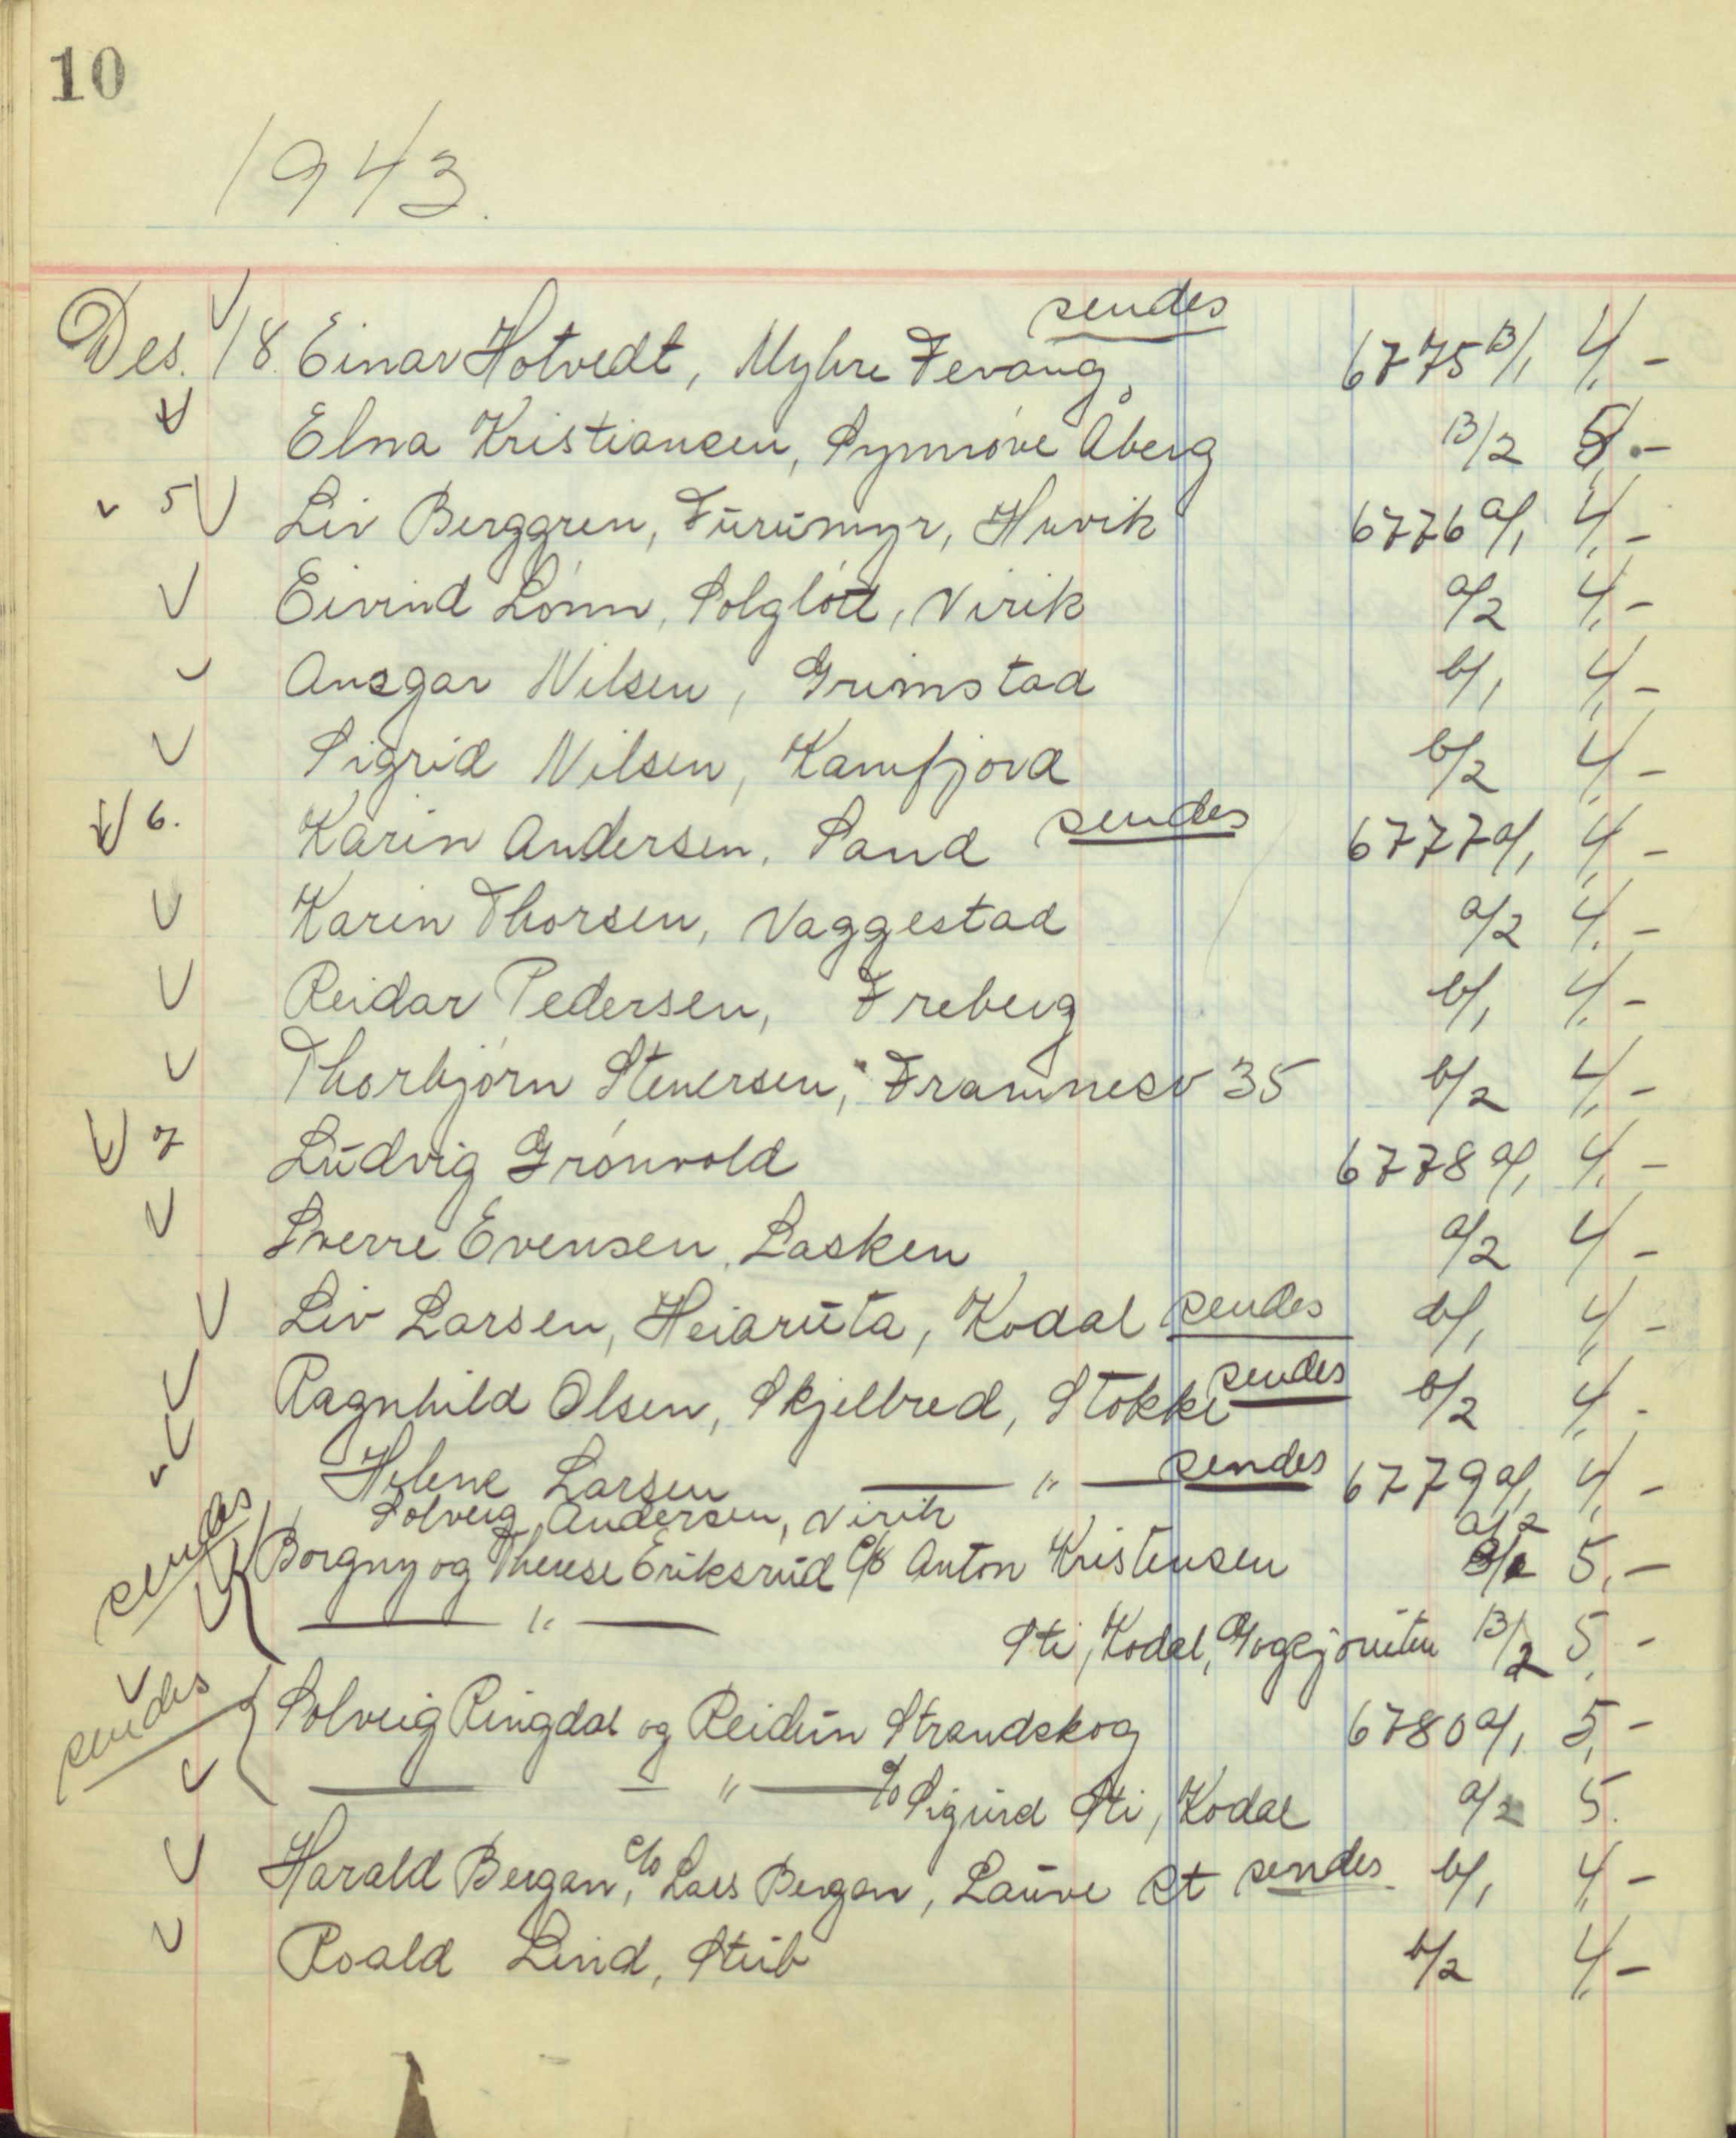 10
1943.
sendes
Des. 18. Einar Hotvedt, Myhre Fevang, 6775 B/1 4,-
Elna Kristiansen, Synnöve Åberg B/2 5.-
5 Liv Berggren, Furumyr, Huvik 6776 a/1 4,-
Eivind Lönn, Solglött, Virik a/2 4,-
Ansgar Nilsen, Grimstad b/1 4,-
Sigrid Nilsen, Kamfjord b/2 4,-
6. Karin Andersen, Sand sendes 6777 a/1 4,-
Karin Thorsen, Vaggestad a/2 4,-
Reidar Pedersen, Freberg b/1 4,-
Thorbjörn Stenersen, Framnesv 35 b/2 4,-
7 Ludvig Grönvold 6778 a/1 4,-
Sverre Evensen, Lasken a/2 4-
Liv Larsen, Heiaruta, Kodal sendes b/1 4,-
Ragnhild Olsen, Skjelbred, Stokke sendes b/2 4,-
Helene Larsen — " — sendes 6779 a/1 4,-
Solveig Andersen, Virik a/2
sendes Borgny og Therese Eriksrud c/o Anton Kristensen B/1 5,-
— " — Sti, Kodal, B/2 5,-
sendes Solveig Ringdal og Reidun Strandskog 6780 a/1 5,-
— " — c/o Sigurd Sti, Kodal a/2 5.
Harald Bergan, c/o Lars Bergan, Lauve st sendes b/1 4,-
Roald Lind, Stub b/2 4,-